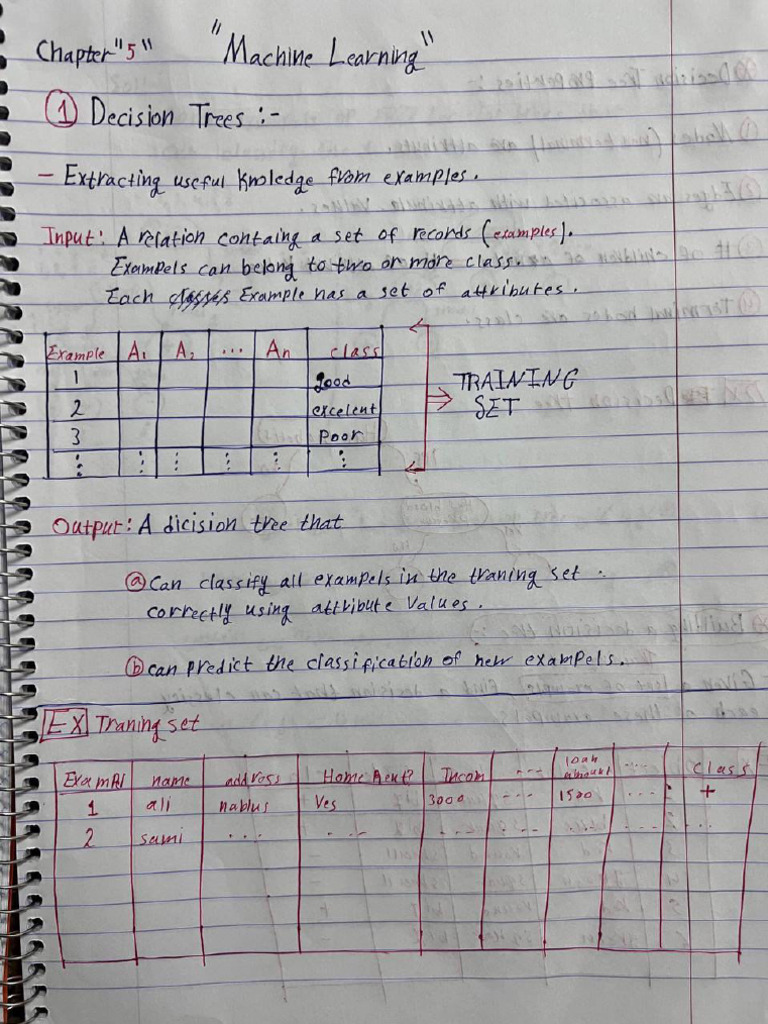 Chapter "5" "Machine Learning"
① Decision Trees :-
- Extracting useful knoledge from examples.
Input: A relation containg a set of records (examples).
Exampels can belong to two or more class.
Each Example has a set of attributes.
Example A1 A2 ... An class
1 good
2 excelent
3 Poor
⋮ ⋮ ⋮ ⋮ ⋮ ⋮
TRAINING
SET
Output: A dicision tree that
ⓐ Can classify all exampels in the traning set.
correctly using attribute values.
ⓑ can predict the classification of new exampels.
EX Traning set
Exampl name address Home Acut? Incom ... loan amount ... Class
1 ali nablus Yes 3000 ... 1500 ... +
2 sami ... ... ... ... ...